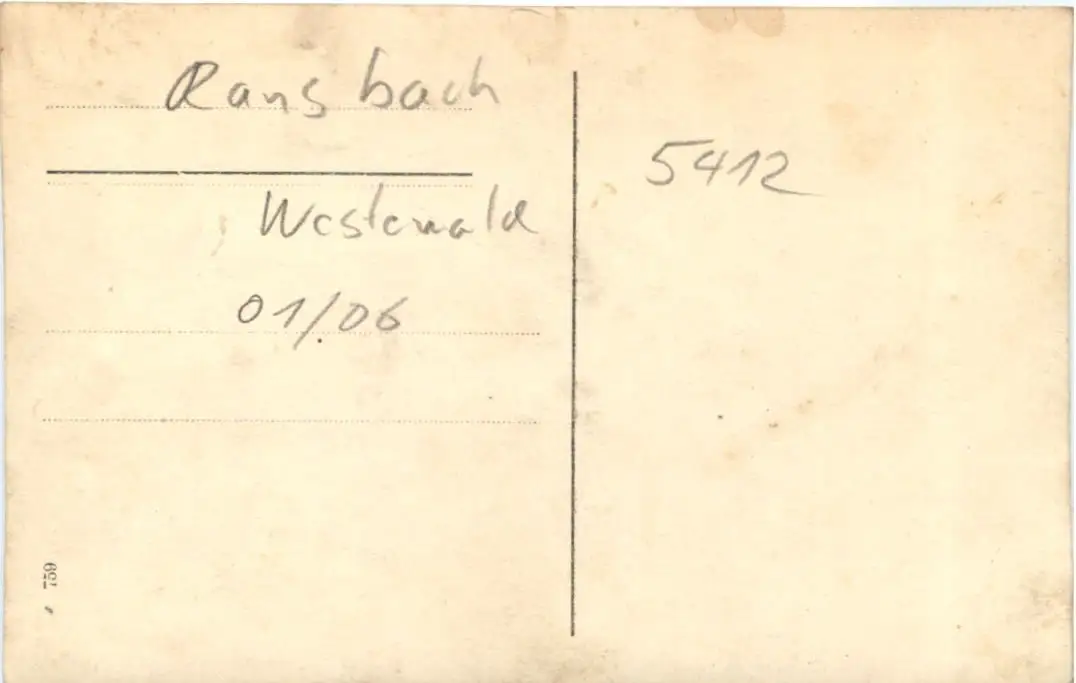 Ransbach
Westerwald
01/06
5412
759